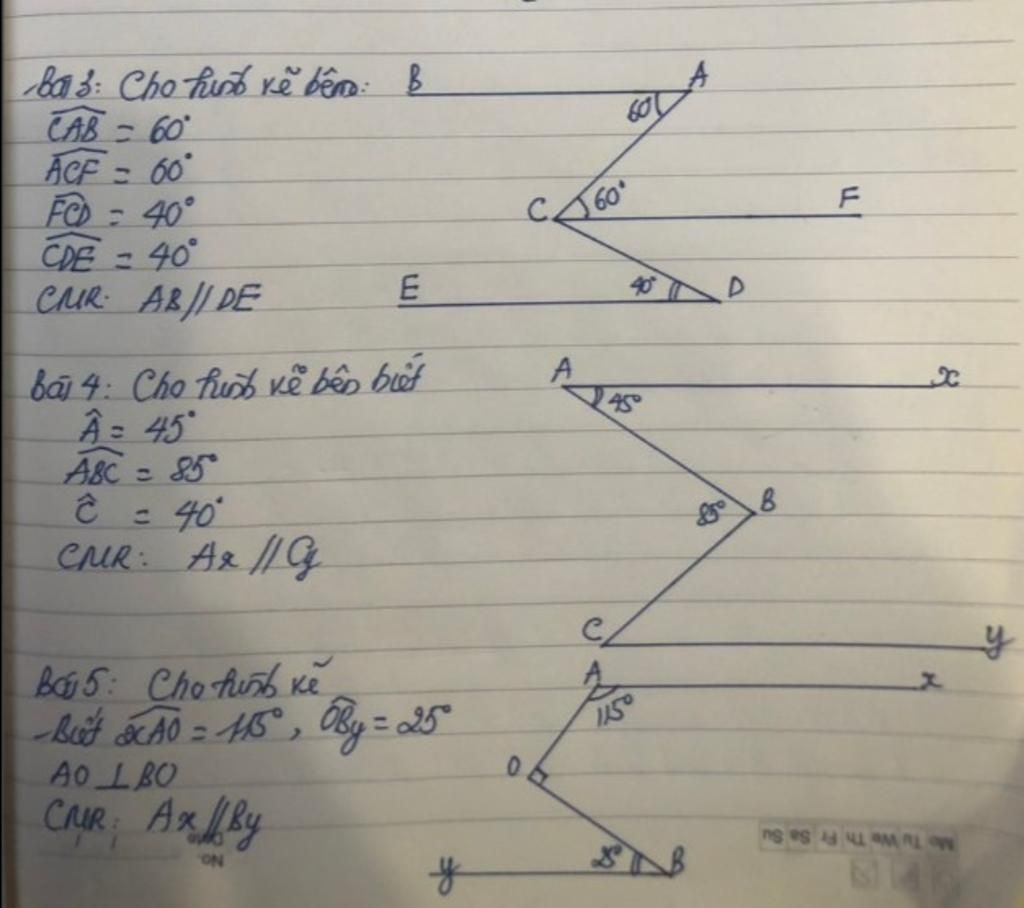 Bài 3: Cho hình vẽ bên:
CAB = 60°
ACF = 60°
FCD = 40°
CDE = 40°
CMR: AB // DE
B
A
60°
C
60°
F
E
40°
D
Bài 4: Cho hình vẽ bên biết
Â = 45°
ABC = 85°
Ĉ = 40°
CMR: Ax // Cy
A
x
45°
85°
B
C
y
Bài 5: Cho hình vẽ
Biết xAO = 115°, OBy = 25°
AO ⊥ BO
CMR: Ax // By
A
x
115°
O
y
25°
B
Date
No.
Mo Tu We Th Fr Sa Su